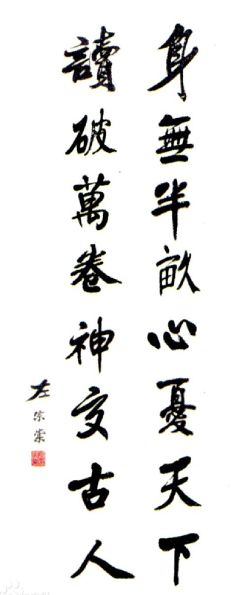 身無半畝心憂天下
讀破萬卷神交古人
左宗棠